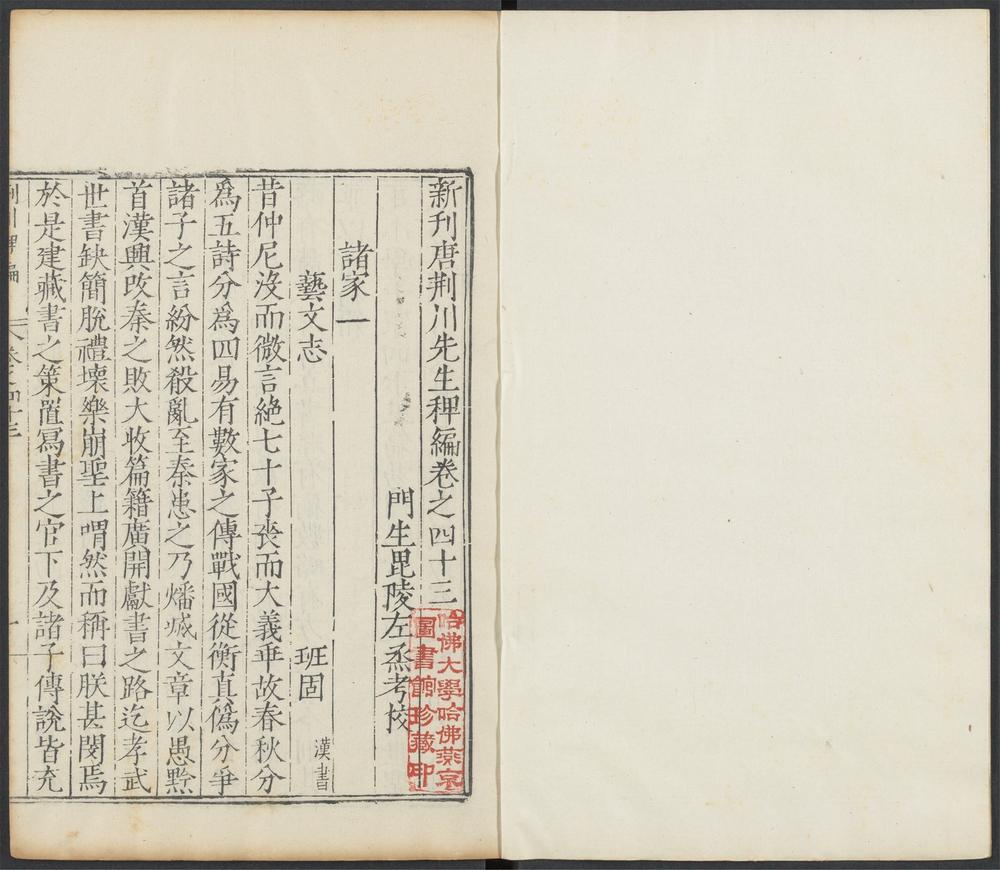 新刊唐荆川先生稗編卷之四十三
門生毘陵左烝考校
諸家一
藝文志 班固 漢書
昔仲尼没而微言絶七十子喪而大義乖故春秋分
爲五詩分爲四易有數家之傳戰國從衡真僞分爭
諸子之言紛然殽亂至秦患之乃燔㓕文章以愚黔
首漢興改秦之敗大收篇籍廣開獻書之路迄孝武
世書缺簡脫禮壞樂崩聖上喟然而稱曰朕甚閔焉
於是建藏書之策置寫書之官下及諸子傳說皆充
荆川稗編 卷之四十三 一
哈佛大學哈佛燕京
圖書館珍藏印